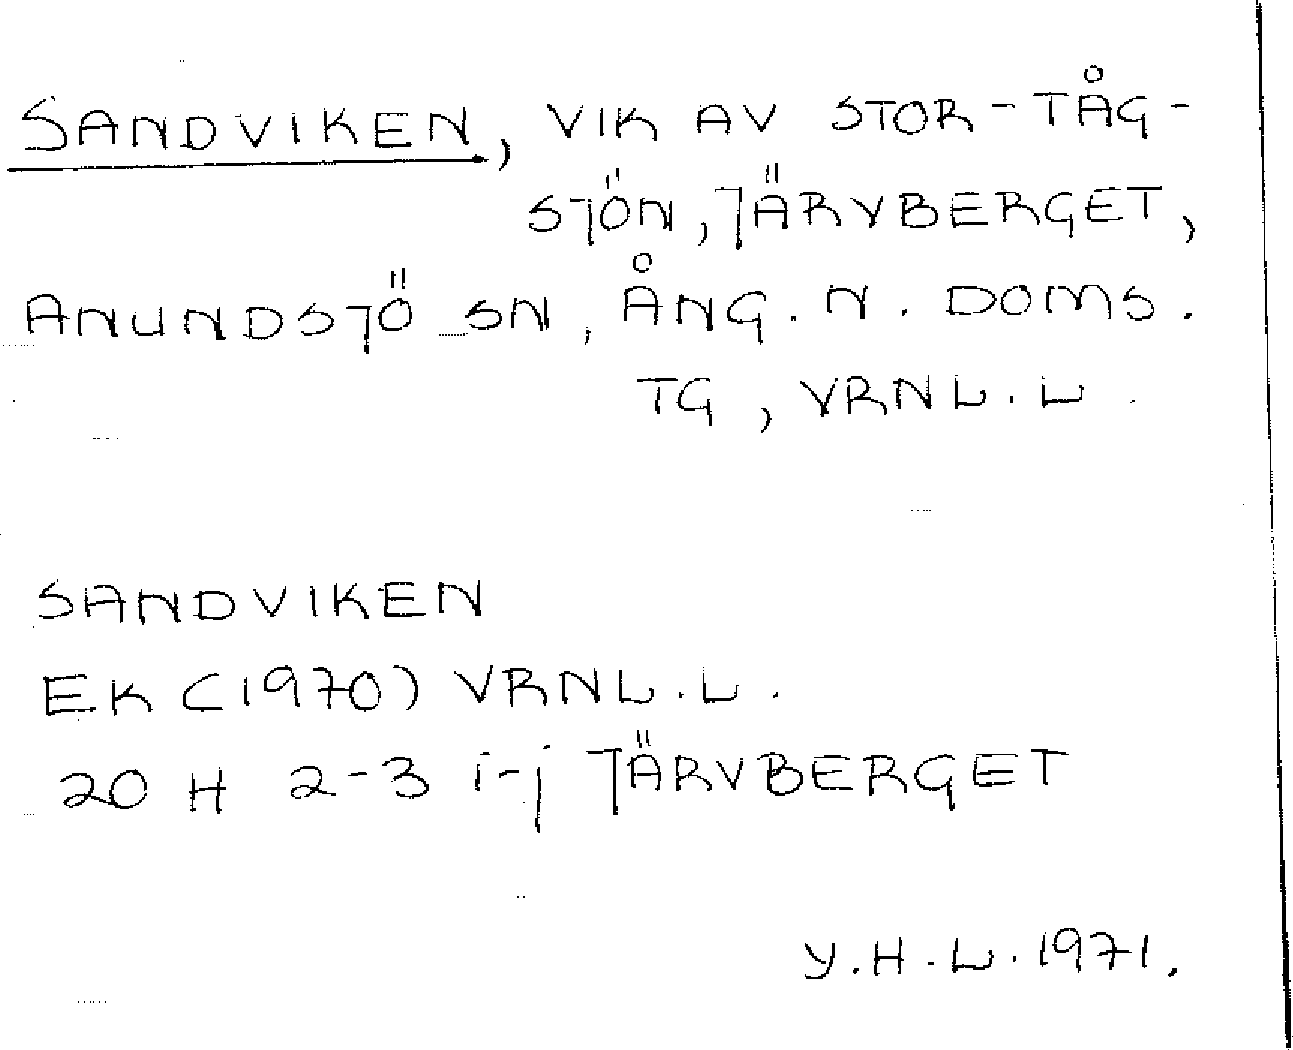 SANDVIKEN, VIK AV STOR-TÅG-
SJÖN, JÄRVBERGET,
ANUNDSJÖ SN, ÅNG. N. DOMS.
TG, VRNL.L.
SANDVIKEN
EK (1970) VRNL.L.
20 H 2-3 i-j JÄRVBERGET
Y.H.L. 1971.